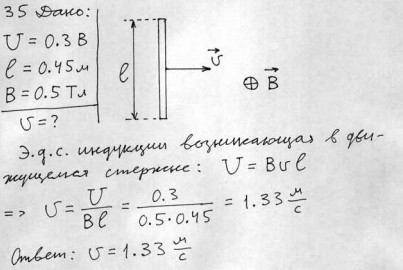 35 Дано:
U = 0.3 В
l = 0.45 м
B = 0.5 Тл
υ = ?
l
υ⃗
⊕ B⃗
Э.д.с. индукции возникающая в дви-
жущемся стержне: U = Bυl
=> υ = U/Bl = 0.3/0.5·0.45 = 1.33 м/с
Ответ: υ = 1.33 м/с